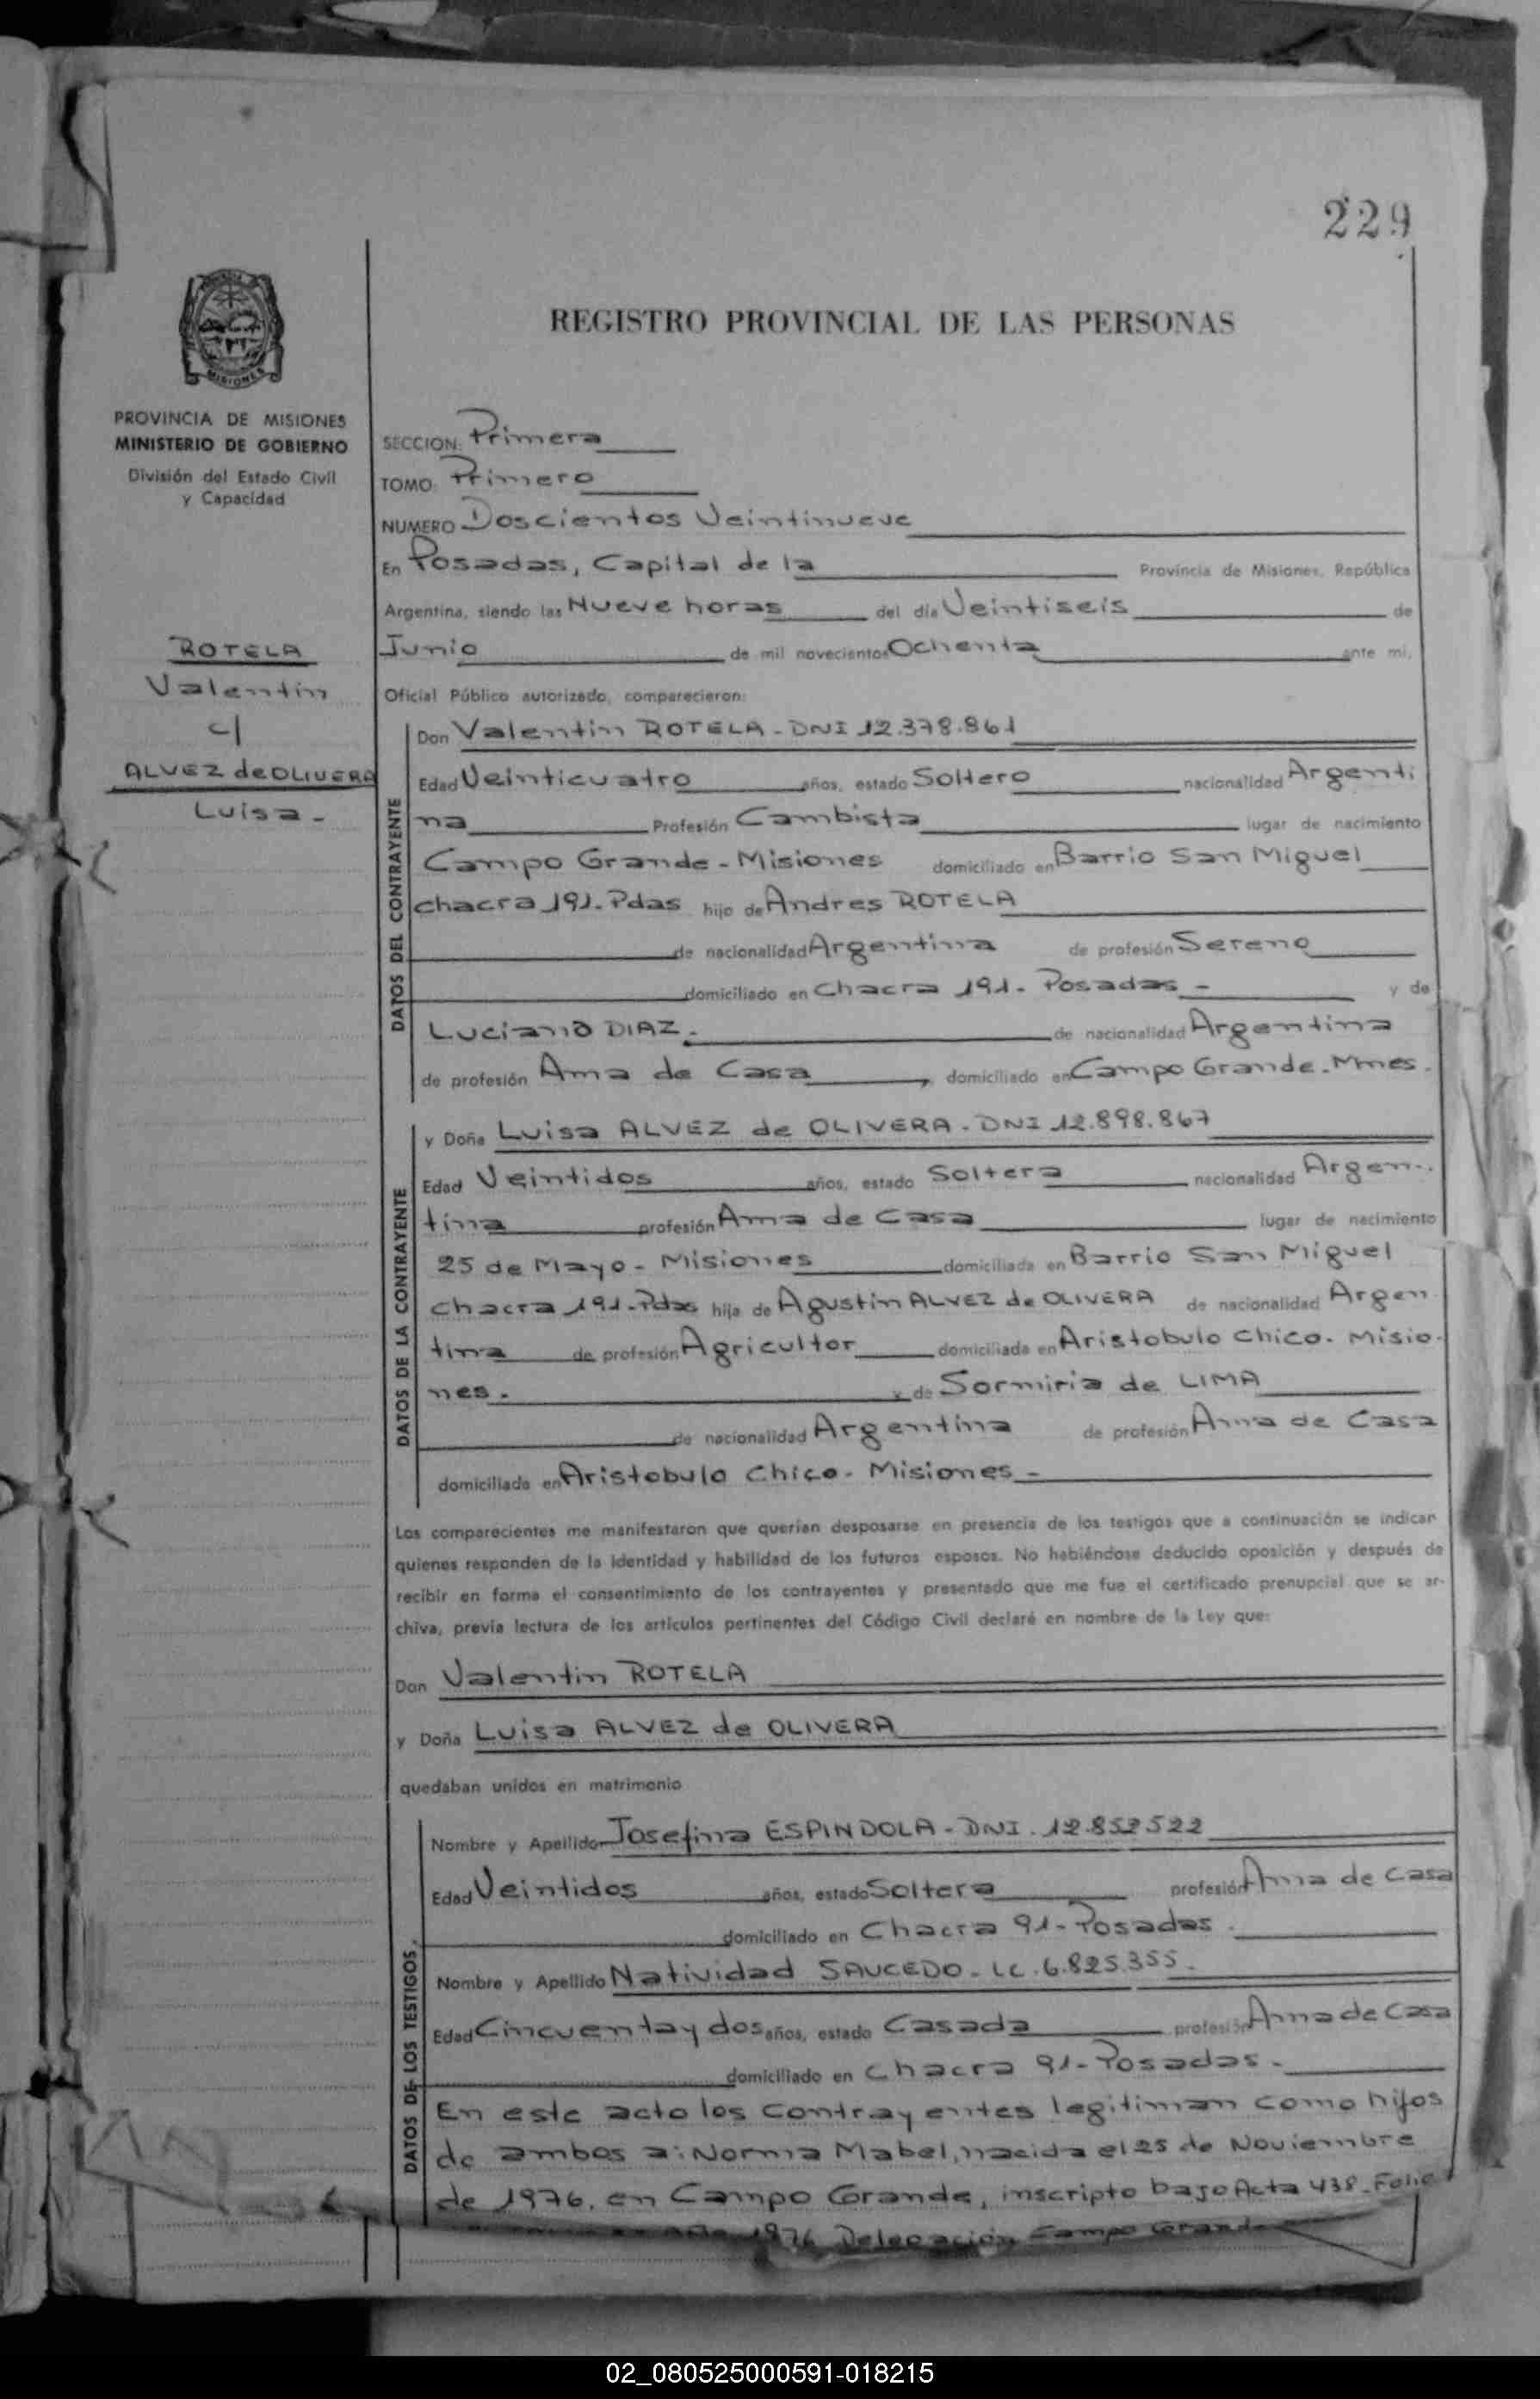 229
REGISTRO PROVINCIAL DE LAS PERSONAS
MISIONES
PROVINCIA DE MISIONES
MINISTERIO DE GOBIERNO
División del Estado Civil
y Capacidad
ROTELA
Valentin
c/
ALVEZ de OLIVERA
Luisa-
SECCION: Primera
TOMO: Primero
NUMERO Doscientos Veintinueve
En Posadas, Capital de la Provincia de Misiones, República
Argentina, siendo las Nueve horas del día Veintiseis de
Junio de mil novecientos Ochenta ante mi,
Oficial Público autorizado, comparecieron:
DATOS DEL CONTRAYENTE
Don Valentin ROTELA - DNI 12.378.861
Edad Veinticuatro años, estado Soltero nacionalidad Argenti
na Profesión Cambista lugar de nacimiento
Campo Grande - Misiones domiciliado en Barrio San Miguel
chacra 191. Pdas hijo de Andres ROTELA
de nacionalidad Argentina de profesión Sereno
domiciliado en Chacra 191. Posadas - y de
Luciana DIAZ. de nacionalidad Argentina
de profesión Ama de Casa, domiciliado en Campo Grande. Mnes.
DATOS DE LA CONTRAYENTE
y Doña Luisa ALVEZ de OLIVERA. DNI 12.898.867
Edad Veintidos años, estado Soltera nacionalidad Argen-
tina profesión Ama de Casa lugar de nacimiento
25 de Mayo - Misiones domiciliada en Barrio San Miguel
Chacra 191. Pdas hija de Agustin ALVEZ de OLIVERA de nacionalidad Argen
tina de profesión Agricultor domiciliado en Aristobulo Chico. Misio-
nes. y de Sormiria de LIMA
de nacionalidad Argentina de profesión Ama de Casa
domiciliada en Aristobulo Chico. Misiones -
Los comparecientes me manifestaron que querían desposarse en presencia de los testigos que a continuación se indican
quienes responden de la identidad y habilidad de los futuros esposos. No habiéndose deducido oposición y después de
recibir en forma el consentimiento de los contrayentes y presentado que me fue el certificado prenupcial que se ar-
chiva, previa lectura de los artículos pertinentes del Código Civil declaré en nombre de la Ley que:
Don Valentin ROTELA
y Doña Luisa ALVEZ de OLIVERA
quedaban unidos en matrimonio
DATOS DE LOS TESTIGOS.
Nombre y Apellido Josefina ESPINDOLA - DNI. 12.852522
Edad Veintidos años, estado Soltera profesión Ama de Casa
domiciliado en Chacra 91 - Posadas.
Nombre y Apellido Natividad SAUCEDO - LC. 6.825.355.
Edad Cincuenta y dos años, estado Casada profesión Ama de Casa
domiciliado en Chacra 91 - Posadas.
En este acto los contrayentes legitiman como hijos
de ambos a: Norma Mabel, nacida el 25 de Noviembre
de 1976, en Campo Grande, inscripto bajo Acta 438. Folio
Año 1976 Delegación Campo Grande
02_080525000591-018215